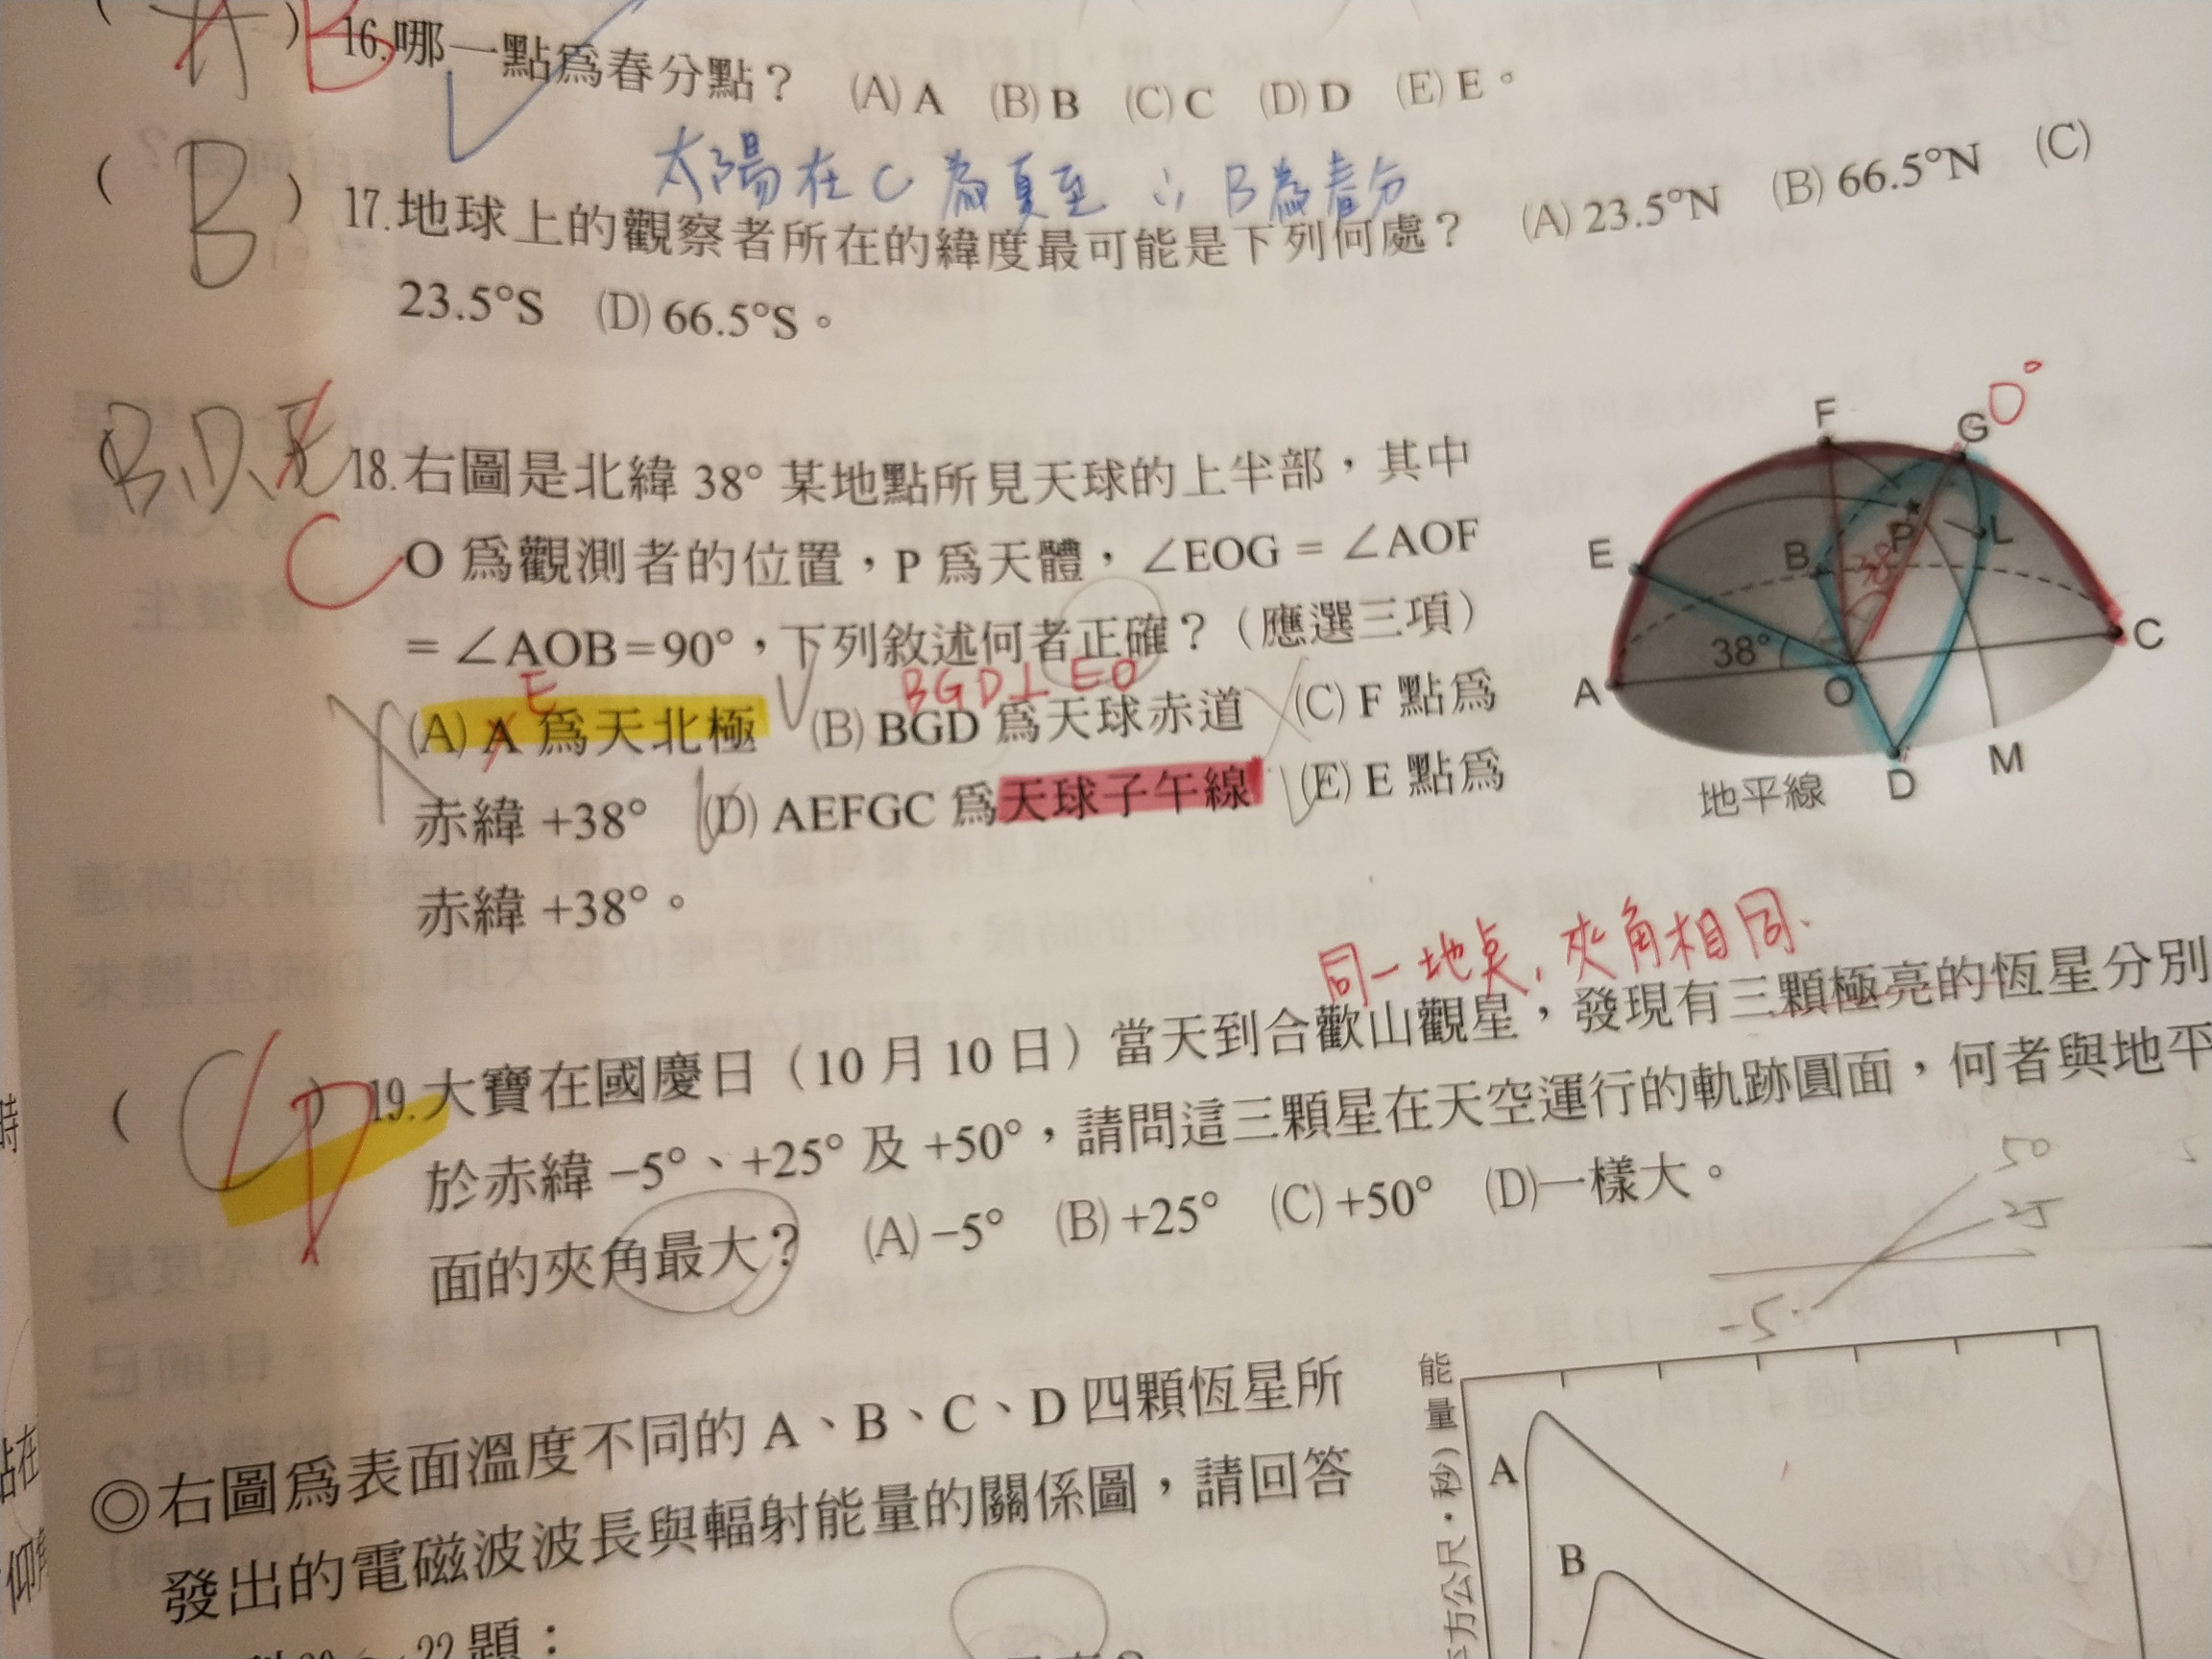 ( A ) B 16.哪一點為春分點？ (A) A (B) B (C) C (D) D (E) E。
太陽在C為夏至 ∴ B為春分
( B ) 17.地球上的觀察者所在的緯度最可能是下列何處？ (A) 23.5°N (B) 66.5°N (C)
23.5°S (D) 66.5°S。
B,D,E 18.右圖是北緯 38° 某地點所見天球的上半部，其中
C O 為觀測者的位置，P 為天體，∠EOG = ∠AOF
= ∠AOB = 90°，下列敘述何者正確？（應選三項）
E BGD⊥EO
(A) A 為天北極 (B) BGD 為天球赤道 (C) F 點為
赤緯 +38° (D) AEFGC 為天球子午線 (E) E 點為
赤緯 +38°。
F G 0°
E B P L
38
A 38° O C
地平線 D M
同一地點，夾角相同.
( C ) D 19.大寶在國慶日（10 月 10 日）當天到合歡山觀星，發現有三顆極亮的恆星分別
於赤緯 –5°、+25° 及 +50°，請問這三顆星在天空運行的軌跡圓面，何者與地平
面的夾角最大？ (A) –5° (B) +25° (C) +50° (D)一樣大。
50
25
-5
◎右圖為表面溫度不同的 A、B、C、D 四顆恆星所
發出的電磁波波長與輻射能量的關係圖，請回答
22 題：
能
量
方公尺・秒)
A
B